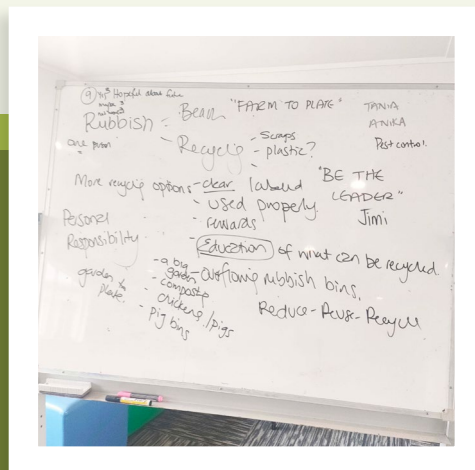 9 yrs Hopeful about future
maybe 3
Rubbish - Bean "FARM TO PLATE" TANIA
ANIKA
one person
- Recycling - Scraps
- plastic? Pest control.
More recycling options - clear labeled "BE THE
LEADER"
- used properly Jimi
- rewards
Personal
Responsibility
- Education of what can be recycled
- overflowing rubbish bins.
garden to
plate.
- a big
garden
- composte
- chickens/pigs
- pig bins
Reduce-Reuse-Recycle